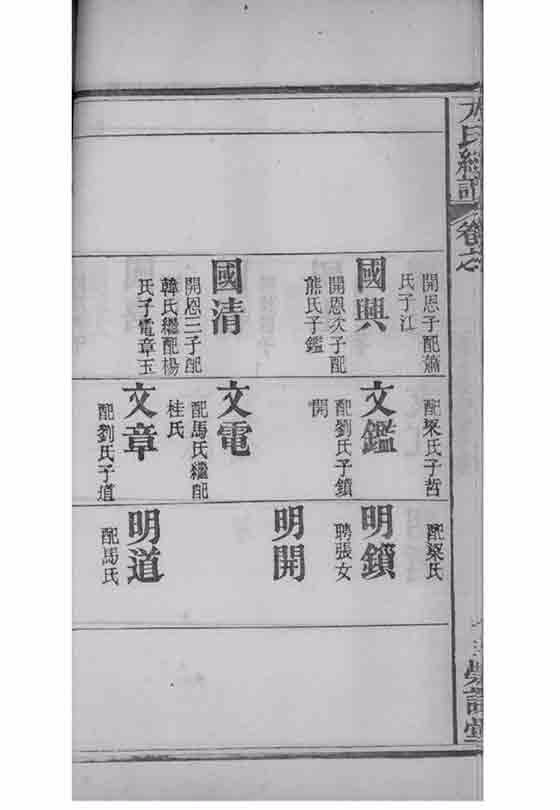 氏經譜
卷之
開恩子配蕭
氏子江
國興
開恩次子配
熊氏子鑑
國清
開恩三子配
韓氏繼配楊
氏子電章玉
配梁氏子哲
文鑑
配劉氏子鎖
開
文電
配馬氏繼配
桂氏
文章
配劉氏子道
配梁氏
明鎖
聘張女
明開
明道
配馬氏